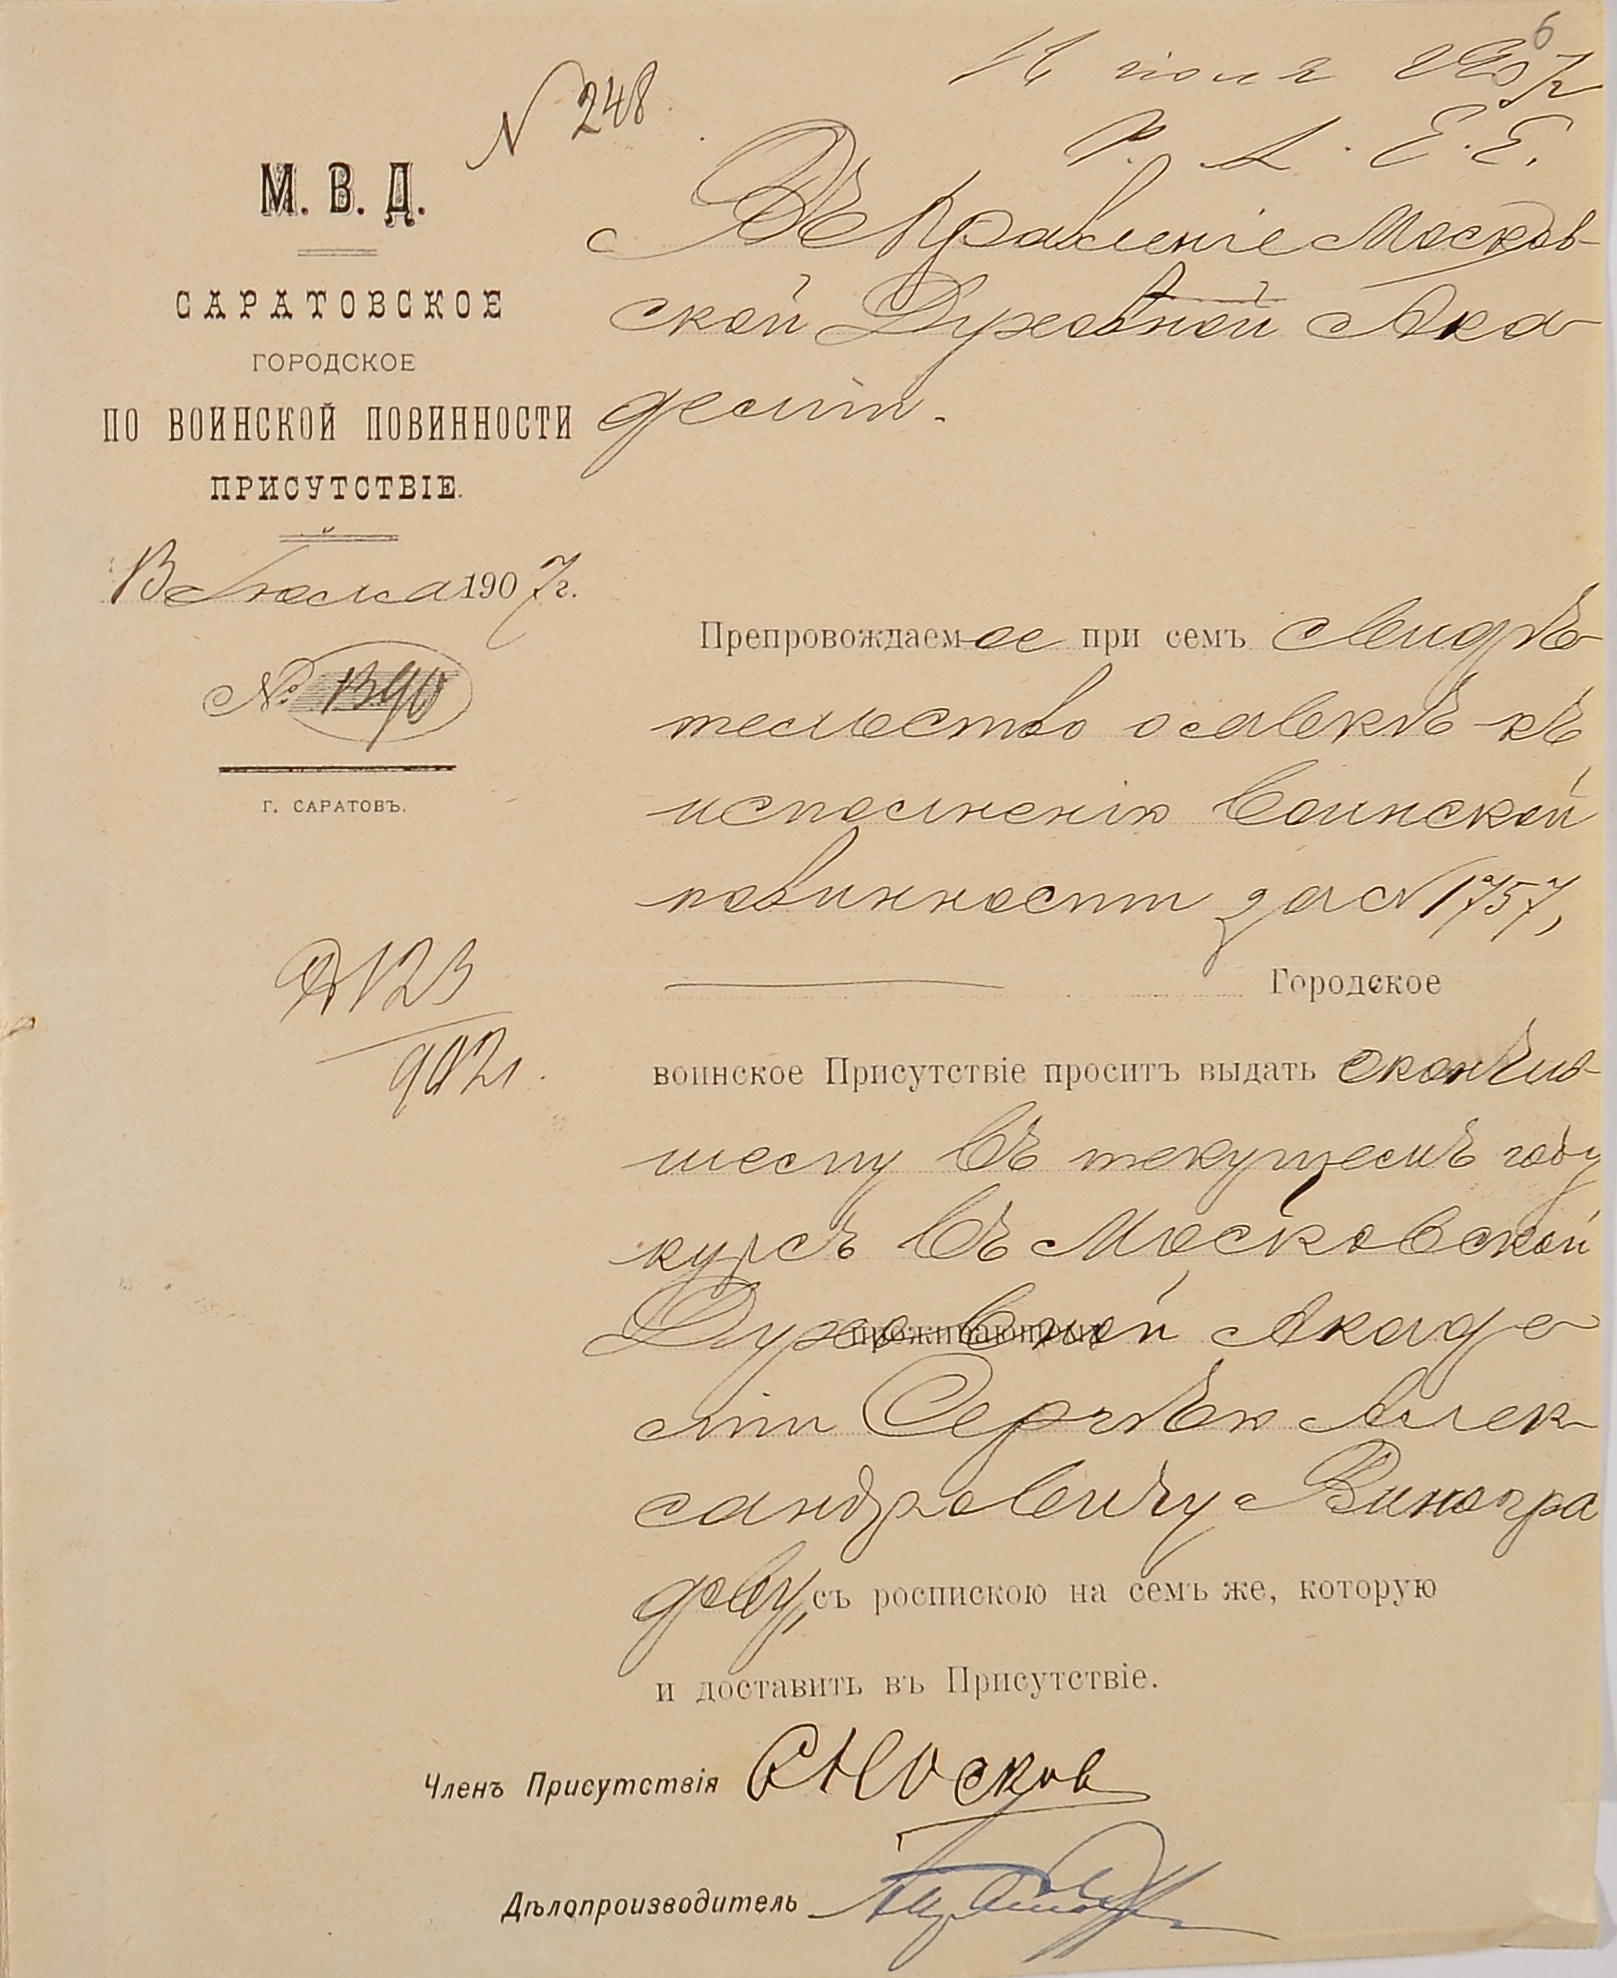 6
16 июля 1907 г.
Р. А. Е. Е.
N 248
М. В. Д.
САРАТОВСКОЕ
ГОРОДСКОЕ
ПО ВОИНСКОЙ ПОВИННОСТИ
ПРИСУТСТВІЕ.
13 Іюля 1907 г.
№ 1390
Г. САРАТОВЪ.
Въ Правленіе Москов-
ской Духовной Ака
деміи.
Препровождаемое при семъ свидѣ
тельство о явкѣ къ
исполненію воинской
повинности за № 1757,
Городское
воинское Присутствіе проситъ выдать окончив-
шему въ текущемъ году
курсъ въ Московской
Духовной Акаде
міи Сергѣю Алек-
сандровичу Виногра
дову, съ роспискою на семъ же, которую
и доставить въ Присутствіе.
123
902 г.
Членъ Присутствія Носков
Дѣлопроизводитель